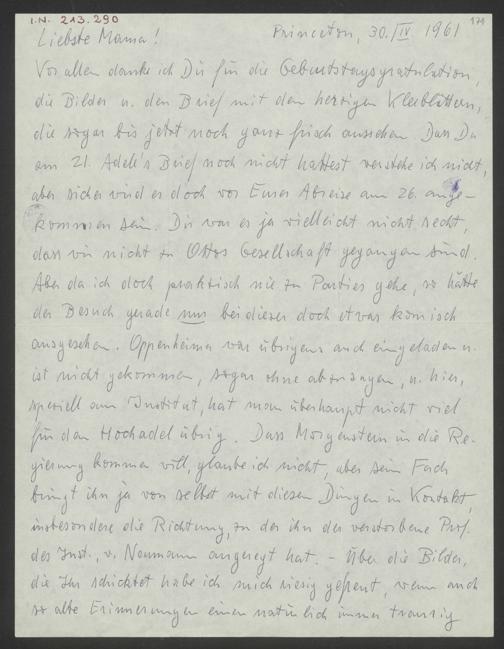 I.N. 213.290
174
Liebste Mama! Princeton, 30./IV 1961
Vor allem danke ich Dir für die Geburtstagsgratulation,
die Bilder u. den Brief mit den herzigen Kleeblättern,
die sogar bis jetzt noch ganz frisch aussehen. Dass Du
am 21. Adele's Brief noch nicht hattest verstehe ich nicht,
aber sicher wird er doch vor Eurer Abreise am 26. ange-
kommen sein. Dir war es ja vielleicht nicht recht,
dass wir nicht zu Ottos Gesellschaft gegangen sind.
Aber da ich doch praktisch nie zu Parties gehe, so hätte
der Besuch gerade nur bei dieser doch etwas komisch
ausgesehen. Oppenheimer war übrigens auch eingeladen u.
ist nicht gekommen, sogar ohne abzusagen, u. hier,
speziell am Institut, hat man überhaupt nicht viel
für den Hochadel übrig. Dass Morgenstern in die Re-
gierung kommen will, glaube ich nicht, aber sein Fach
bringt ihn ja von selbst mit diesen Dingen in Kontakt,
insbesondere die Richtung, zu der ihn der verstorbene Prof.
des Inst., v. Neumann angeregt hat. – Über die Bilder,
die Ihr schicktet habe ich mich riesig gefreut, wenn auch
so alte Erinnerungen einen natürlich immer traurig